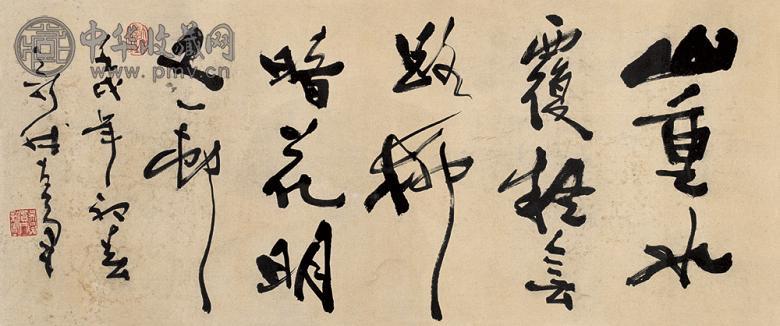 山重水
覆疑無
路柳
暗花明
又一村
壬戌年初春
中华收藏网
www.pmv.cn